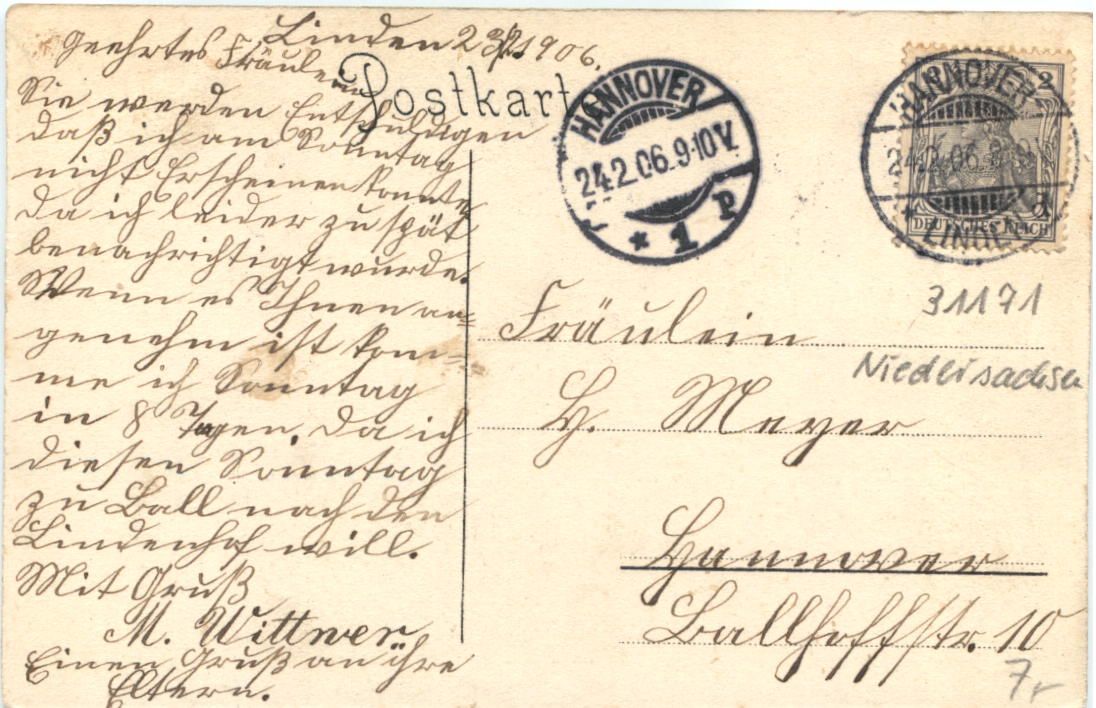 Linden 23/2 1906.
Geehrtes Fräulein
Postkarte
Sie werden Entschuldigen
daß ich am Sonntag
nicht Erscheinen konnte
da ich leider zu spät
benachrichtigt wurde.
Wenn es Ihnen an=
genehm ist kom=
me ich Sonntag
in 8 Tagen. Da ich
diesen Sonntag
zu Ball nach den
Lindenhof will.
Mit Gruß
M. Wittwer
Einen Gruß an ihre
Eltern.
HANNOVER
24.2.06.9-10V.
* 1 P
HANNOVER
24.2.06.
* LINDEN
2
DEUTSCHES REICH
31171
Niedersachsen
Fräulein
H. Meyer
Hannover
Ballhoffstr. 10
7,-